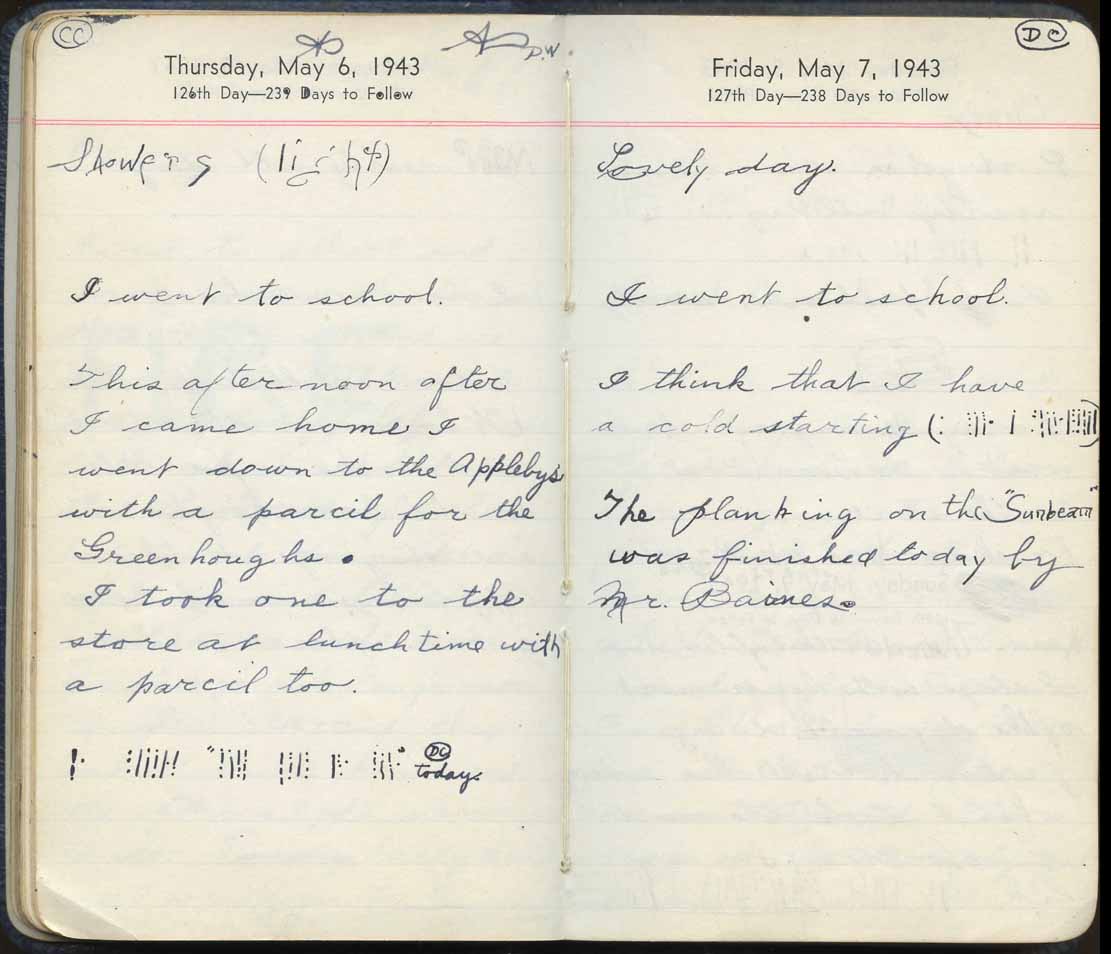 CC
D.W.
Thursday, May 6, 1943
126th Day—239 Days to Follow
Showers (light)
I went to school.
This after noon after
I came home I
went down to the Appleby's
with a parcil for the
Greenhoughs.
I took one to the
store at lunchtime with
a parcil too.
DC
today.
DC
Friday, May 7, 1943
127th Day—238 Days to Follow
Lovely day.
I went to school.
I think that I have
a cold starting (
The planking on the "Sunbeam"
was finished today by
Mr. Baines.